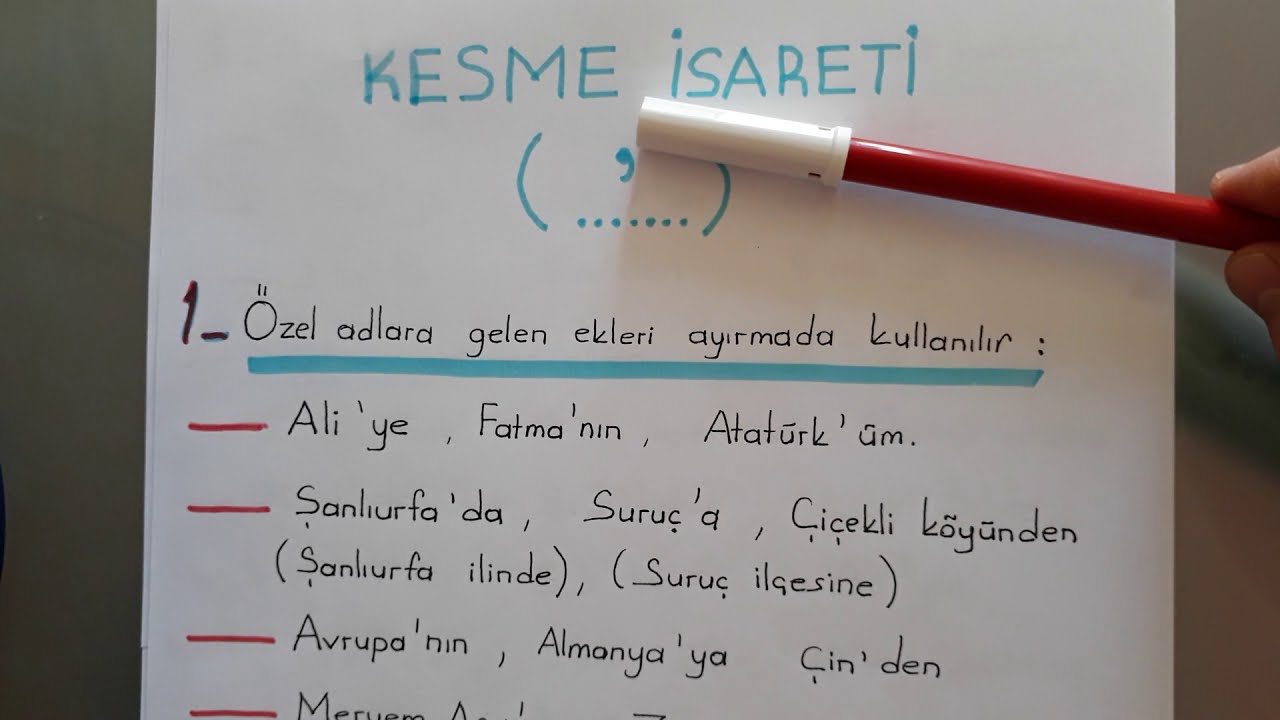 KESME İSARETİ
( ’ ....... )
1- Özel adlara gelen ekleri ayırmada kullanılır :
— Ali 'ye , Fatma'nın , Atatürk' üm.
— Şanlıurfa'da , Suruç'a , Çiçekli köyünden
(Şanlıurfa ilinde), (Suruç ilçesine)
— Avrupa'nın , Almanya'ya Çin'den
— Meryem